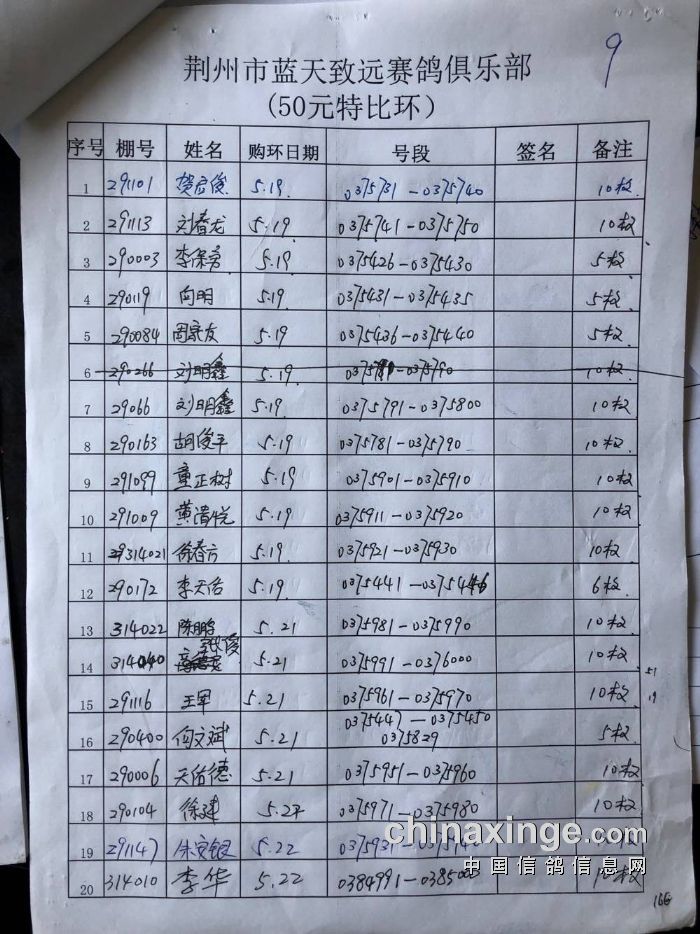 9
荆州市蓝天致远赛鸽俱乐部
(50元特比环)
序号 棚号 姓名 购环日期 号段 签名 备注
1 291101 贺启俊 5.19. 0375731-0375740 10枚
2 291113 刘春龙 5.19 0375741-0375750 10枚
3 290003 李保勇 5.19 0375426-0375430 5枚
4 290119 向明 5.19 0375431-0375435 5枚
5 290084 周家友 5.19 0375436-0375440 5枚
6 290266 刘明鑫 5.19. -0375790 10枚
7 29066 刘明鑫 5.19. 0375791-0375800 10枚
8 290163 胡俊平 5.19 0375781-0375790 10枚
9 291099 童正树 5.19 0375901-0375910 10枚
10 291009 黄清悦 5.19 0375911-0375920 10枚
11 314021 徐春方 5.19 0375921-0375930 10枚
12 290172 李天佑 5.19. 0375441-0375446 6枚
13 314022 陈鹏 5.21 0375981-0375990 10枚
14 314040 张俊 5.21 0375991-0376000 10枚
15 291116 王军 5.21 0375961-0375970 10枚
16 290400 向文斌 5.21 0375447-0375450 5枚
0375829
17 290006 天佑德 5.21 0375951-0375960 10枚
18 290104 徐建 5.22 0375971-0375980 10枚
19 291147 朱安银 5.22 0375931-
20 314010 李华 5.22 0384991-0385000 10枚
chinaxinge.com
中国信鸽信息网